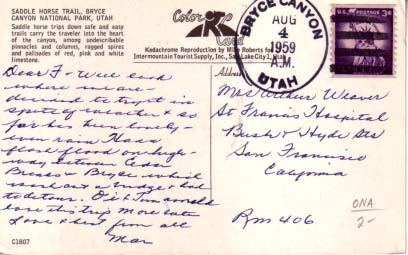 SADDLE HORSE TRAIL, BRYCE
CANYON NATIONAL PARK, UTAH
Saddle horse trips down safe and easy
trails carry the traveler into the heart
of the canyon, among undescribable
pinnacles and columns, ragged spires
and palisades of red, pink and white
limestone.
Color Card
Kodachrome Reproduction by Mike Roberts for
Intermountain Tourist Supply, Inc., Salt Lake City 1, Utah
BRYCE CANYON
AUG
4
1959
A.M.
UTAH
U.S. POSTAGE 3¢
Address
Dear F - Well look
where we are -
to try it in
spite of weather & so
far has been lovely -
even rain. Had
flash flood on high-
way between Cedar
Breaks & Bryce which
washed out a bridge & had
to detour. Di & Tom would
love this trip. More later
Love & best from all
Mar
Mrs Arthur Weaver
St Francis Hospital
Bush & Hyde Sts
San Francisco
California
Rm 406
ONA
2-
C1807